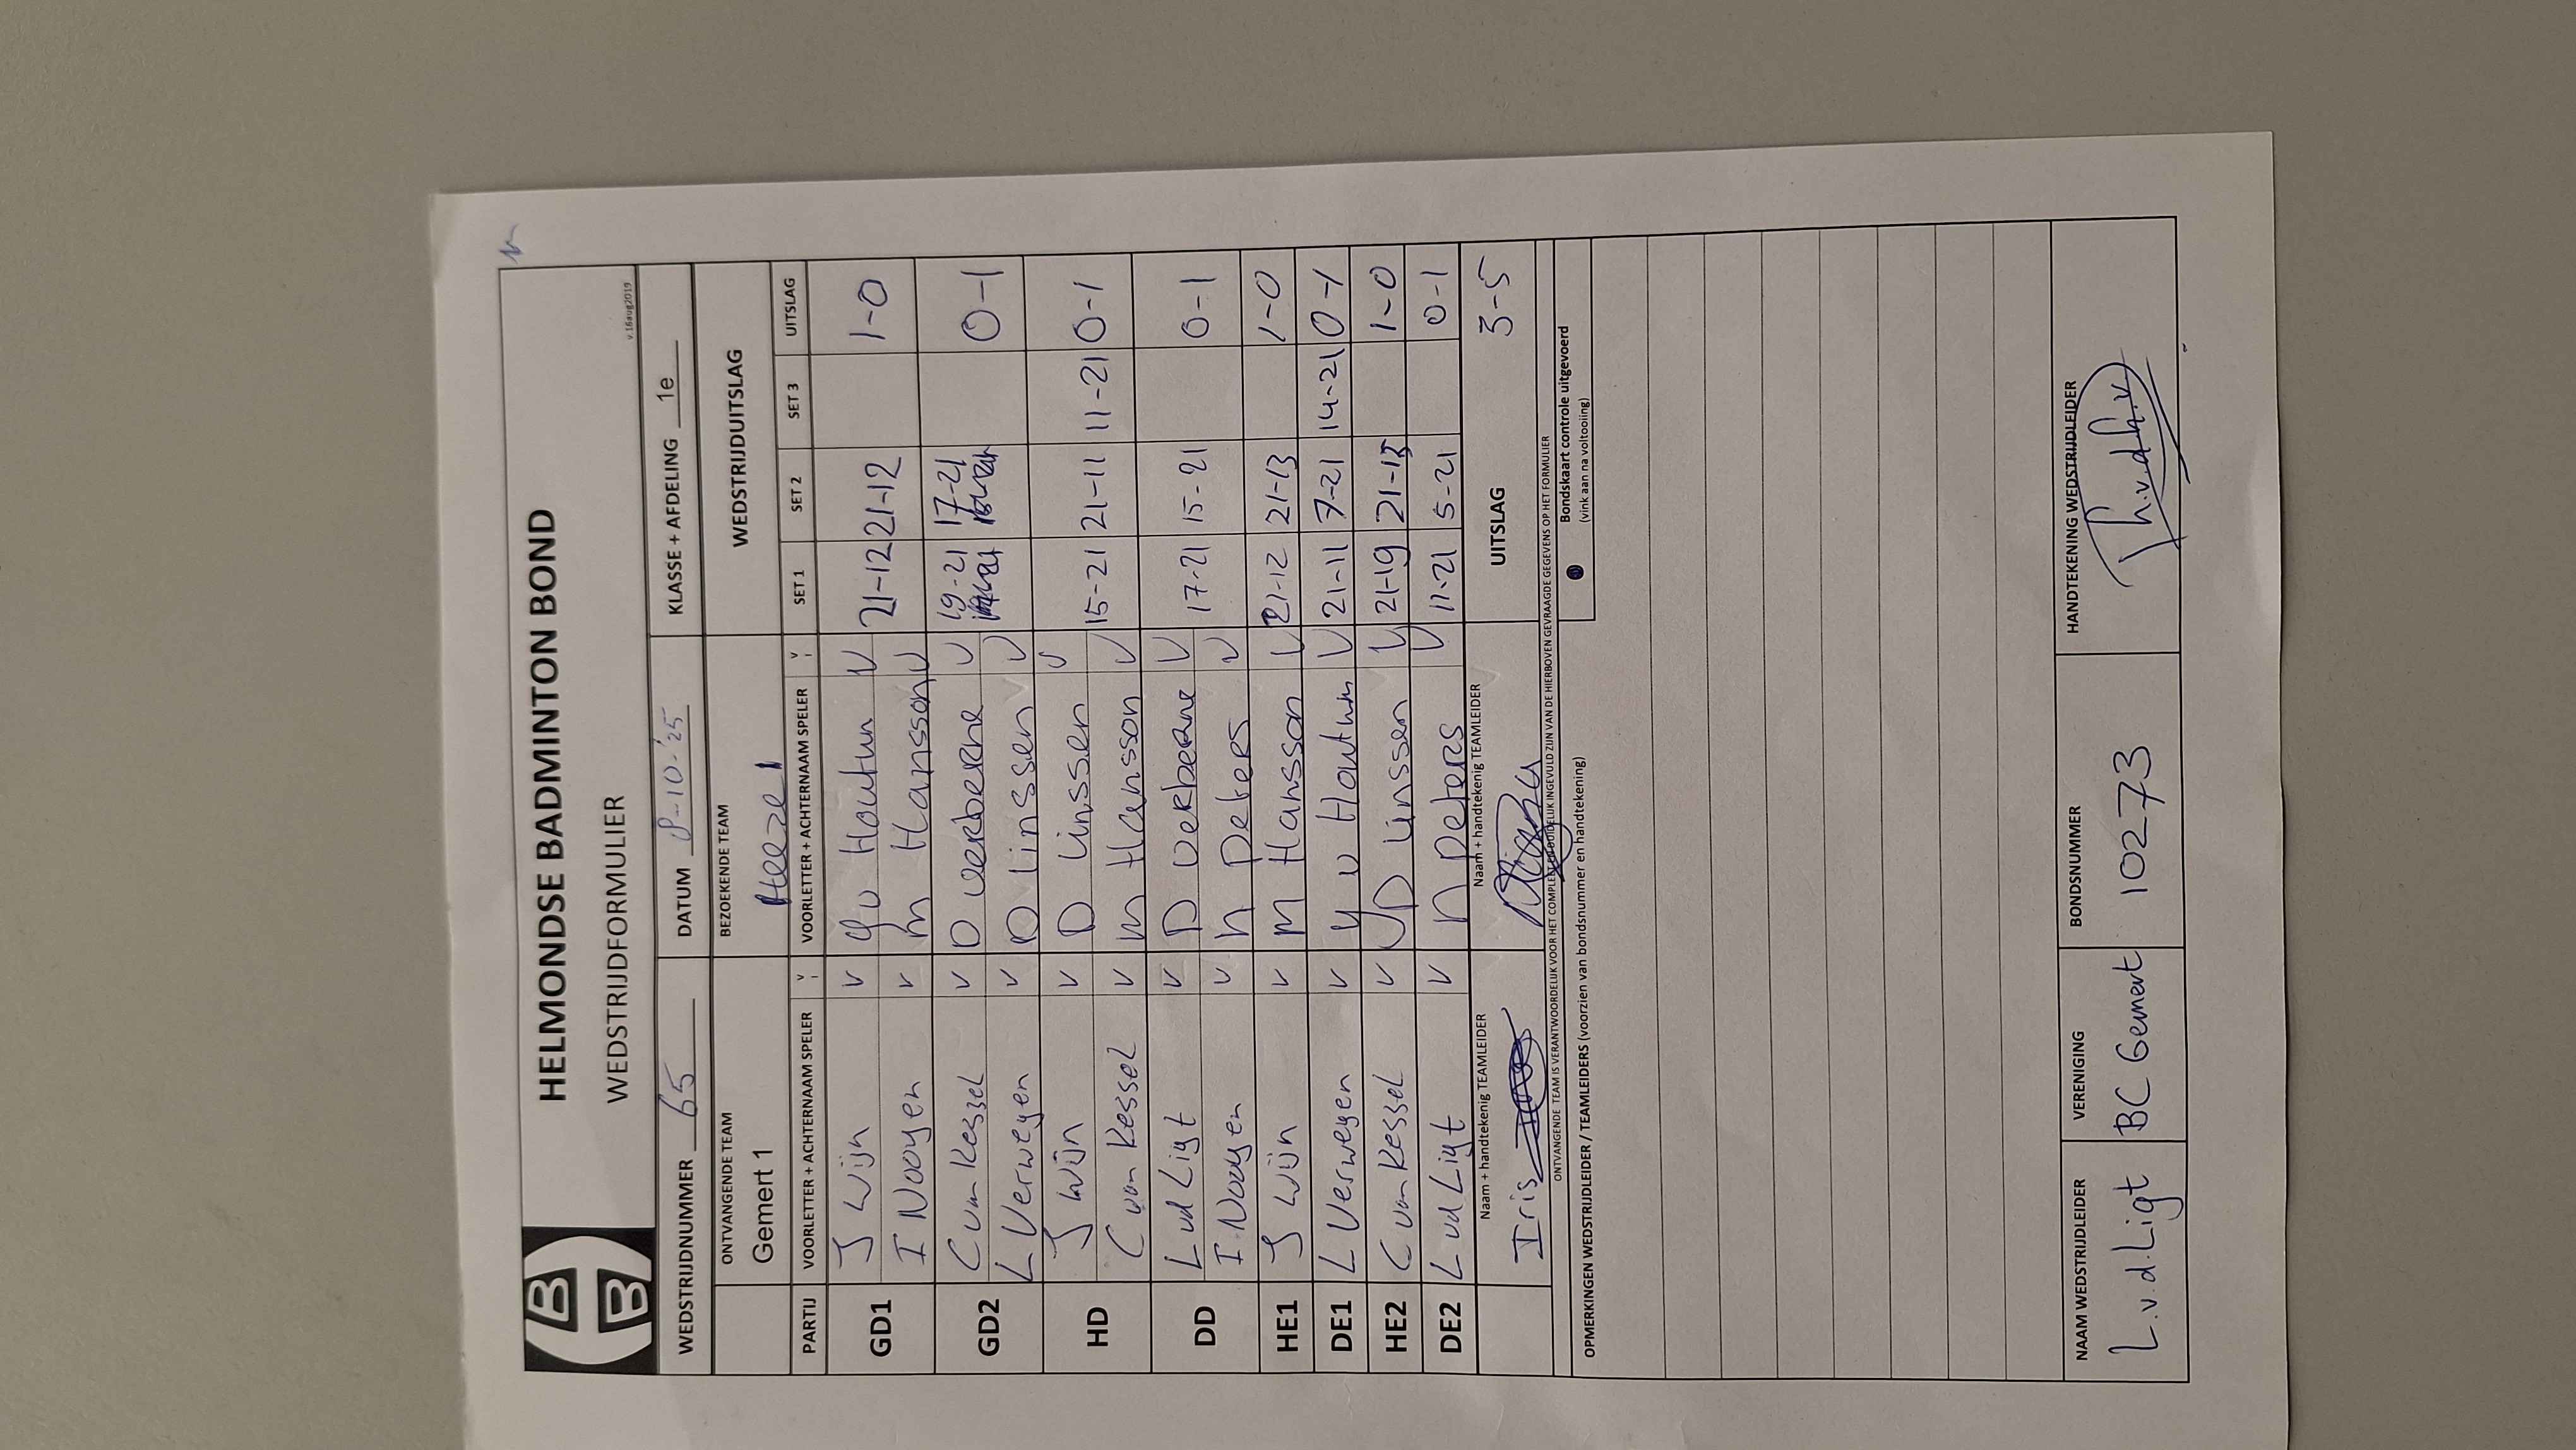 HELMONDSE BADMINTON BOND
WEDSTRIJDFORMULIER
v.16aug2019
WEDSTRIJDNUMMER 65 DATUM 8-10-'25 KLASSE + AFDELING 1e
ONTVANGENDE TEAM BEZOEKENDE TEAM WEDSTRIJDUITSLAG
Gemert 1 Heeze 1
PARTIJ VOORLETTER + ACHTERNAAM SPELER v VOORLETTER + ACHTERNAAM SPELER v SET 1 SET 2 SET 3 UITSLAG
GD1 J Wijn v Y v Houtum v 21-12 21-12 1-0
I Nooyen v M Hansson v
GD2 C van Kessel v D Verberne v 19-21 17-21 0-1
L Verwegen v D Linssen v
HD J Wijn v D Linssen v 15-21 21-11 11-21 0-1
C van Kessel v M Hansson v
DD L vd Ligt v D Verberne v 17-21 15-21 0-1
I. Nooyen v N Peters v
HE1 J Wijn v M Hansson v 21-12 21-13 1-0
DE1 L Verwegen v Y v Houtum v 21-11 7-21 14-21 0-1
HE2 C van Kessel v D Linssen v 21-19 21-15 1-0
DE2 L vd Ligt v N Peters v 11-21 5-21 0-1
Naam + handtekenig TEAMLEIDER Naam + handtekenig TEAMLEIDER UITSLAG 3-5
Iris
ONTVANGENDE TEAM IS VERANTWOORDELIJK VOOR HET COMPLEET EN DUIDELIJK INGEVULD ZIJN VAN DE HIERBOVEN GEVRAAGDE GEGEVENS OP HET FORMULIER
OPMERKINGEN WEDSTRIJDLEIDER / TEAMLEIDERS (voorzien van bondsnummer en handtekening)
Bondskaart controle uitgevoerd
(vink aan na voltooiing)
NAAM WEDSTRIJDLEIDER VERENIGING BONDSNUMMER HANDTEKENING WEDSTRIJDLEIDER
L.v.d.Ligt BC Gemert 10273